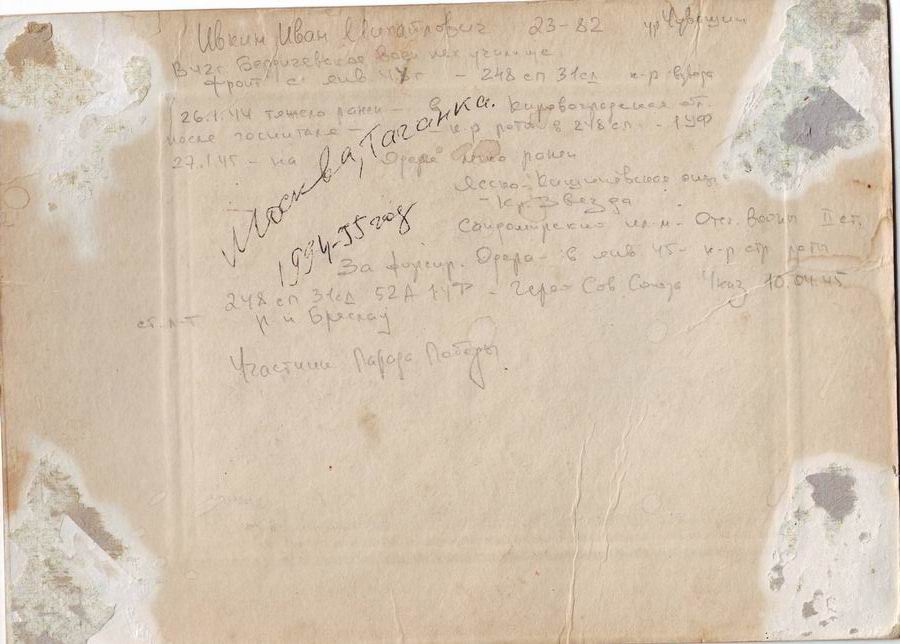 Ивкин Иван Михайлович 23-82 ур Чувашии
В 42г. Бердичевское воен пех училище
Фронт с янв 43г - 248 сп 31сд к-р взвода
26.1.44 тяжело ранен - В Кировоградская оп.
после госпиталя - к-р роты в 248 сп. - 1УФ
27.1.45 - на Одере ранен
Москва, Таганка.
Ясско-Кишиневская
- Кр. Звезда
1994-95 год
Сандомирский пл-м - Отеч. Войны II ст.
За форсир. Одера - в янв 45 - к-р стр роты
248 сп 31сд 52А 1УФ - Герой Сов Союза Указ 10.04.45
ст. л-т р-н Бреслау
Участник Парада Победы